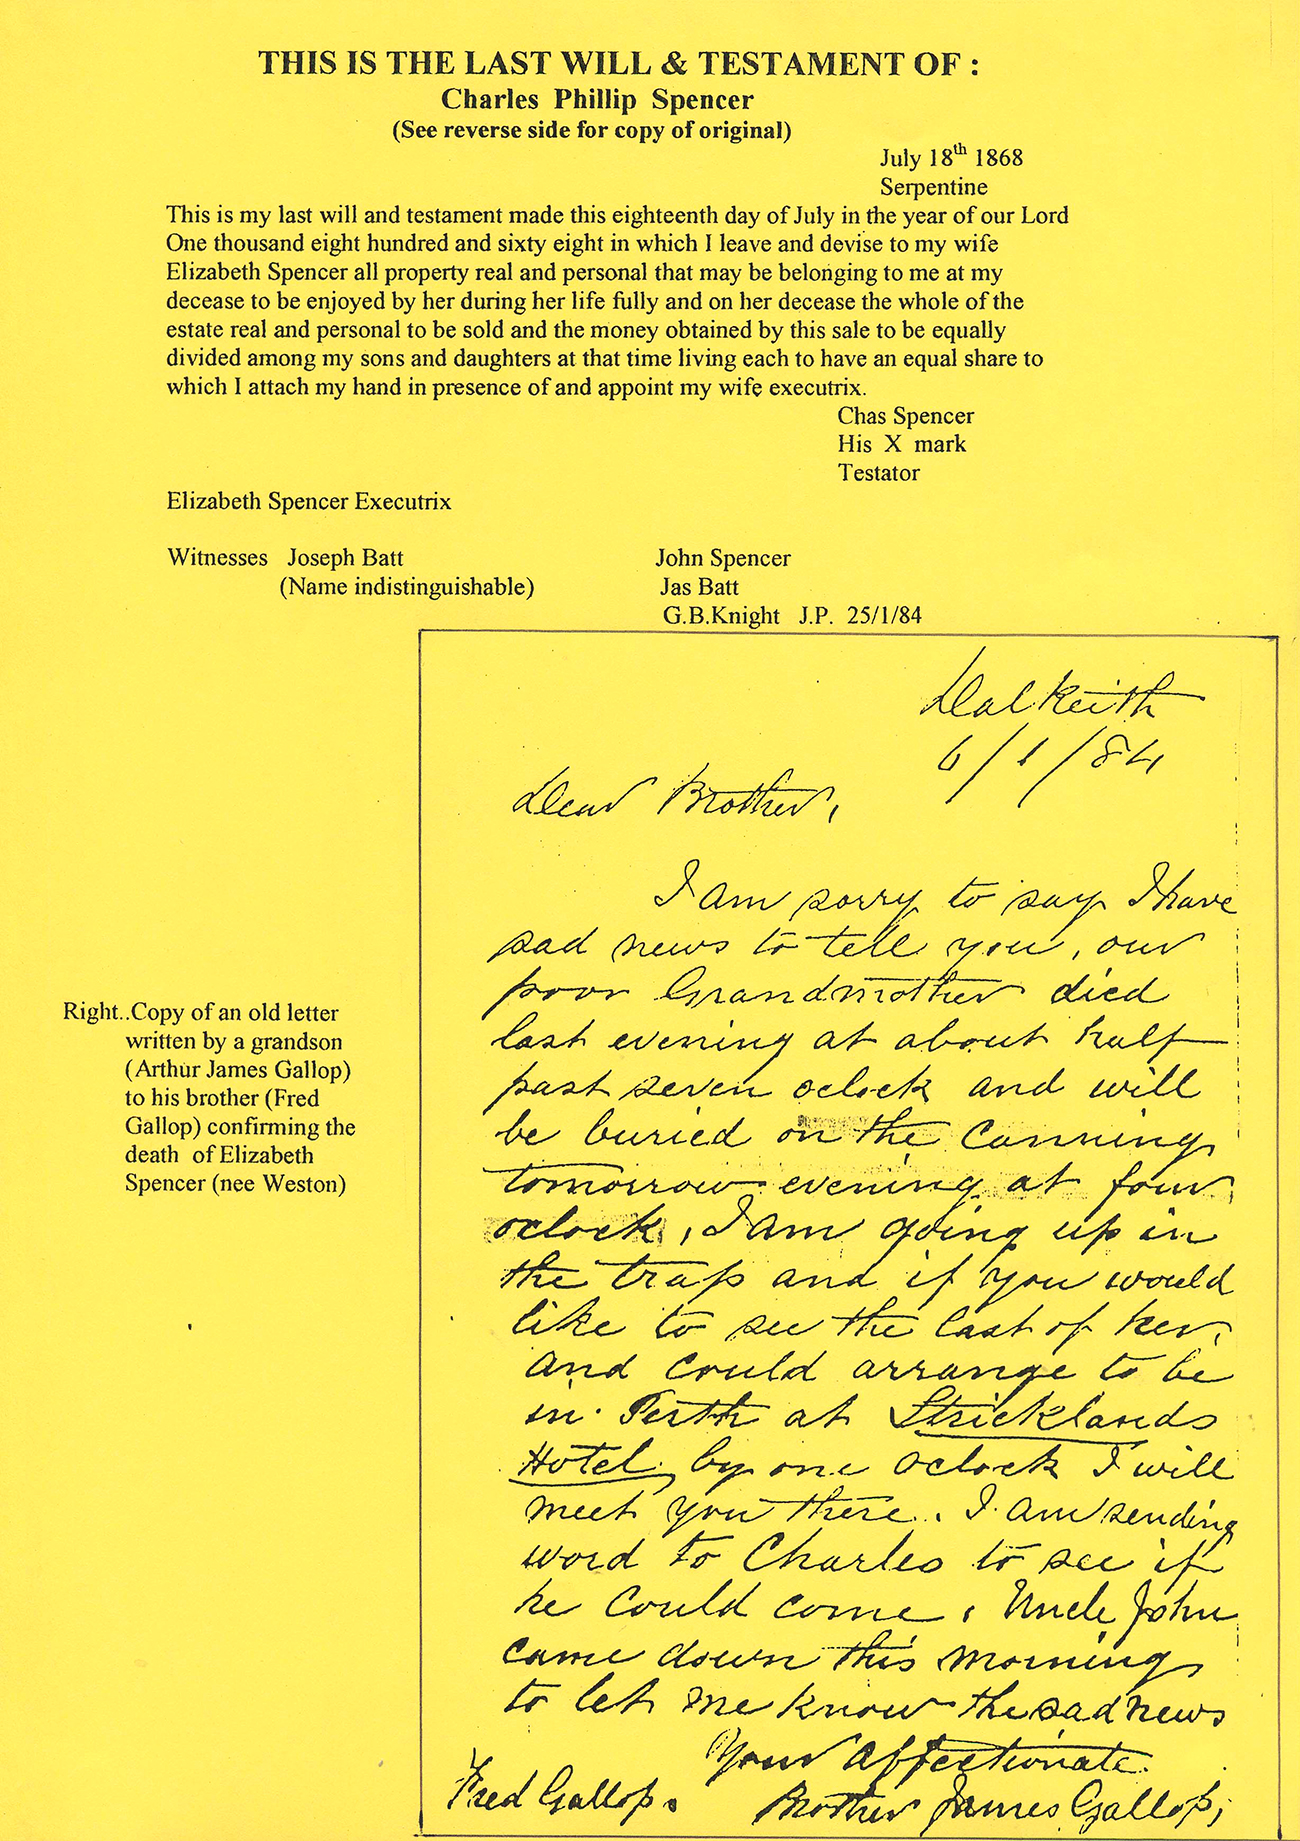 THIS IS THE LAST WILL & TESTAMENT OF :
Charles Phillip Spencer
(See reverse side for copy of original)
July 18th 1868
Serpentine
This is my last will and testament made this eighteenth day of July in the year of our Lord
One thousand eight hundred and sixty eight in which I leave and devise to my wife
Elizabeth Spencer all property real and personal that may be belonging to me at my
decease to be enjoyed by her during her life fully and on her decease the whole of the
estate real and personal to be sold and the money obtained by this sale to be equally
divided among my sons and daughters at that time living each to have an equal share to
which I attach my hand in presence of and appoint my wife executrix.
Chas Spencer
His X mark
Testator
Elizabeth Spencer Executrix
Witnesses Joseph Batt John Spencer
(Name indistinguishable) Jas Batt
G.B.Knight J.P. 25/1/84
Right..Copy of an old letter
written by a grandson
(Arthur James Gallop)
to his brother (Fred
Gallop) confirming the
death of Elizabeth
Spencer (nee Weston)
Dalkeith
6/1/84
Dear Brother,
I am sorry to say I have
sad news to tell you, our
poor Grandmother died
last evening at about half
past seven oclock and will
be buried on the Canning
tomorrow evening at four
oclock, I am going up in
the trap and if you would
like to see the last of her,
and could arrange to be
in Perth at Stricklands
Hotel by one oclock I will
meet you there. I am sending
word to Charles to see if
he could come, Uncle John
came down this morning
to let me know the sad news
Your affectionate
Fred Gallop. Brother James Gallop,